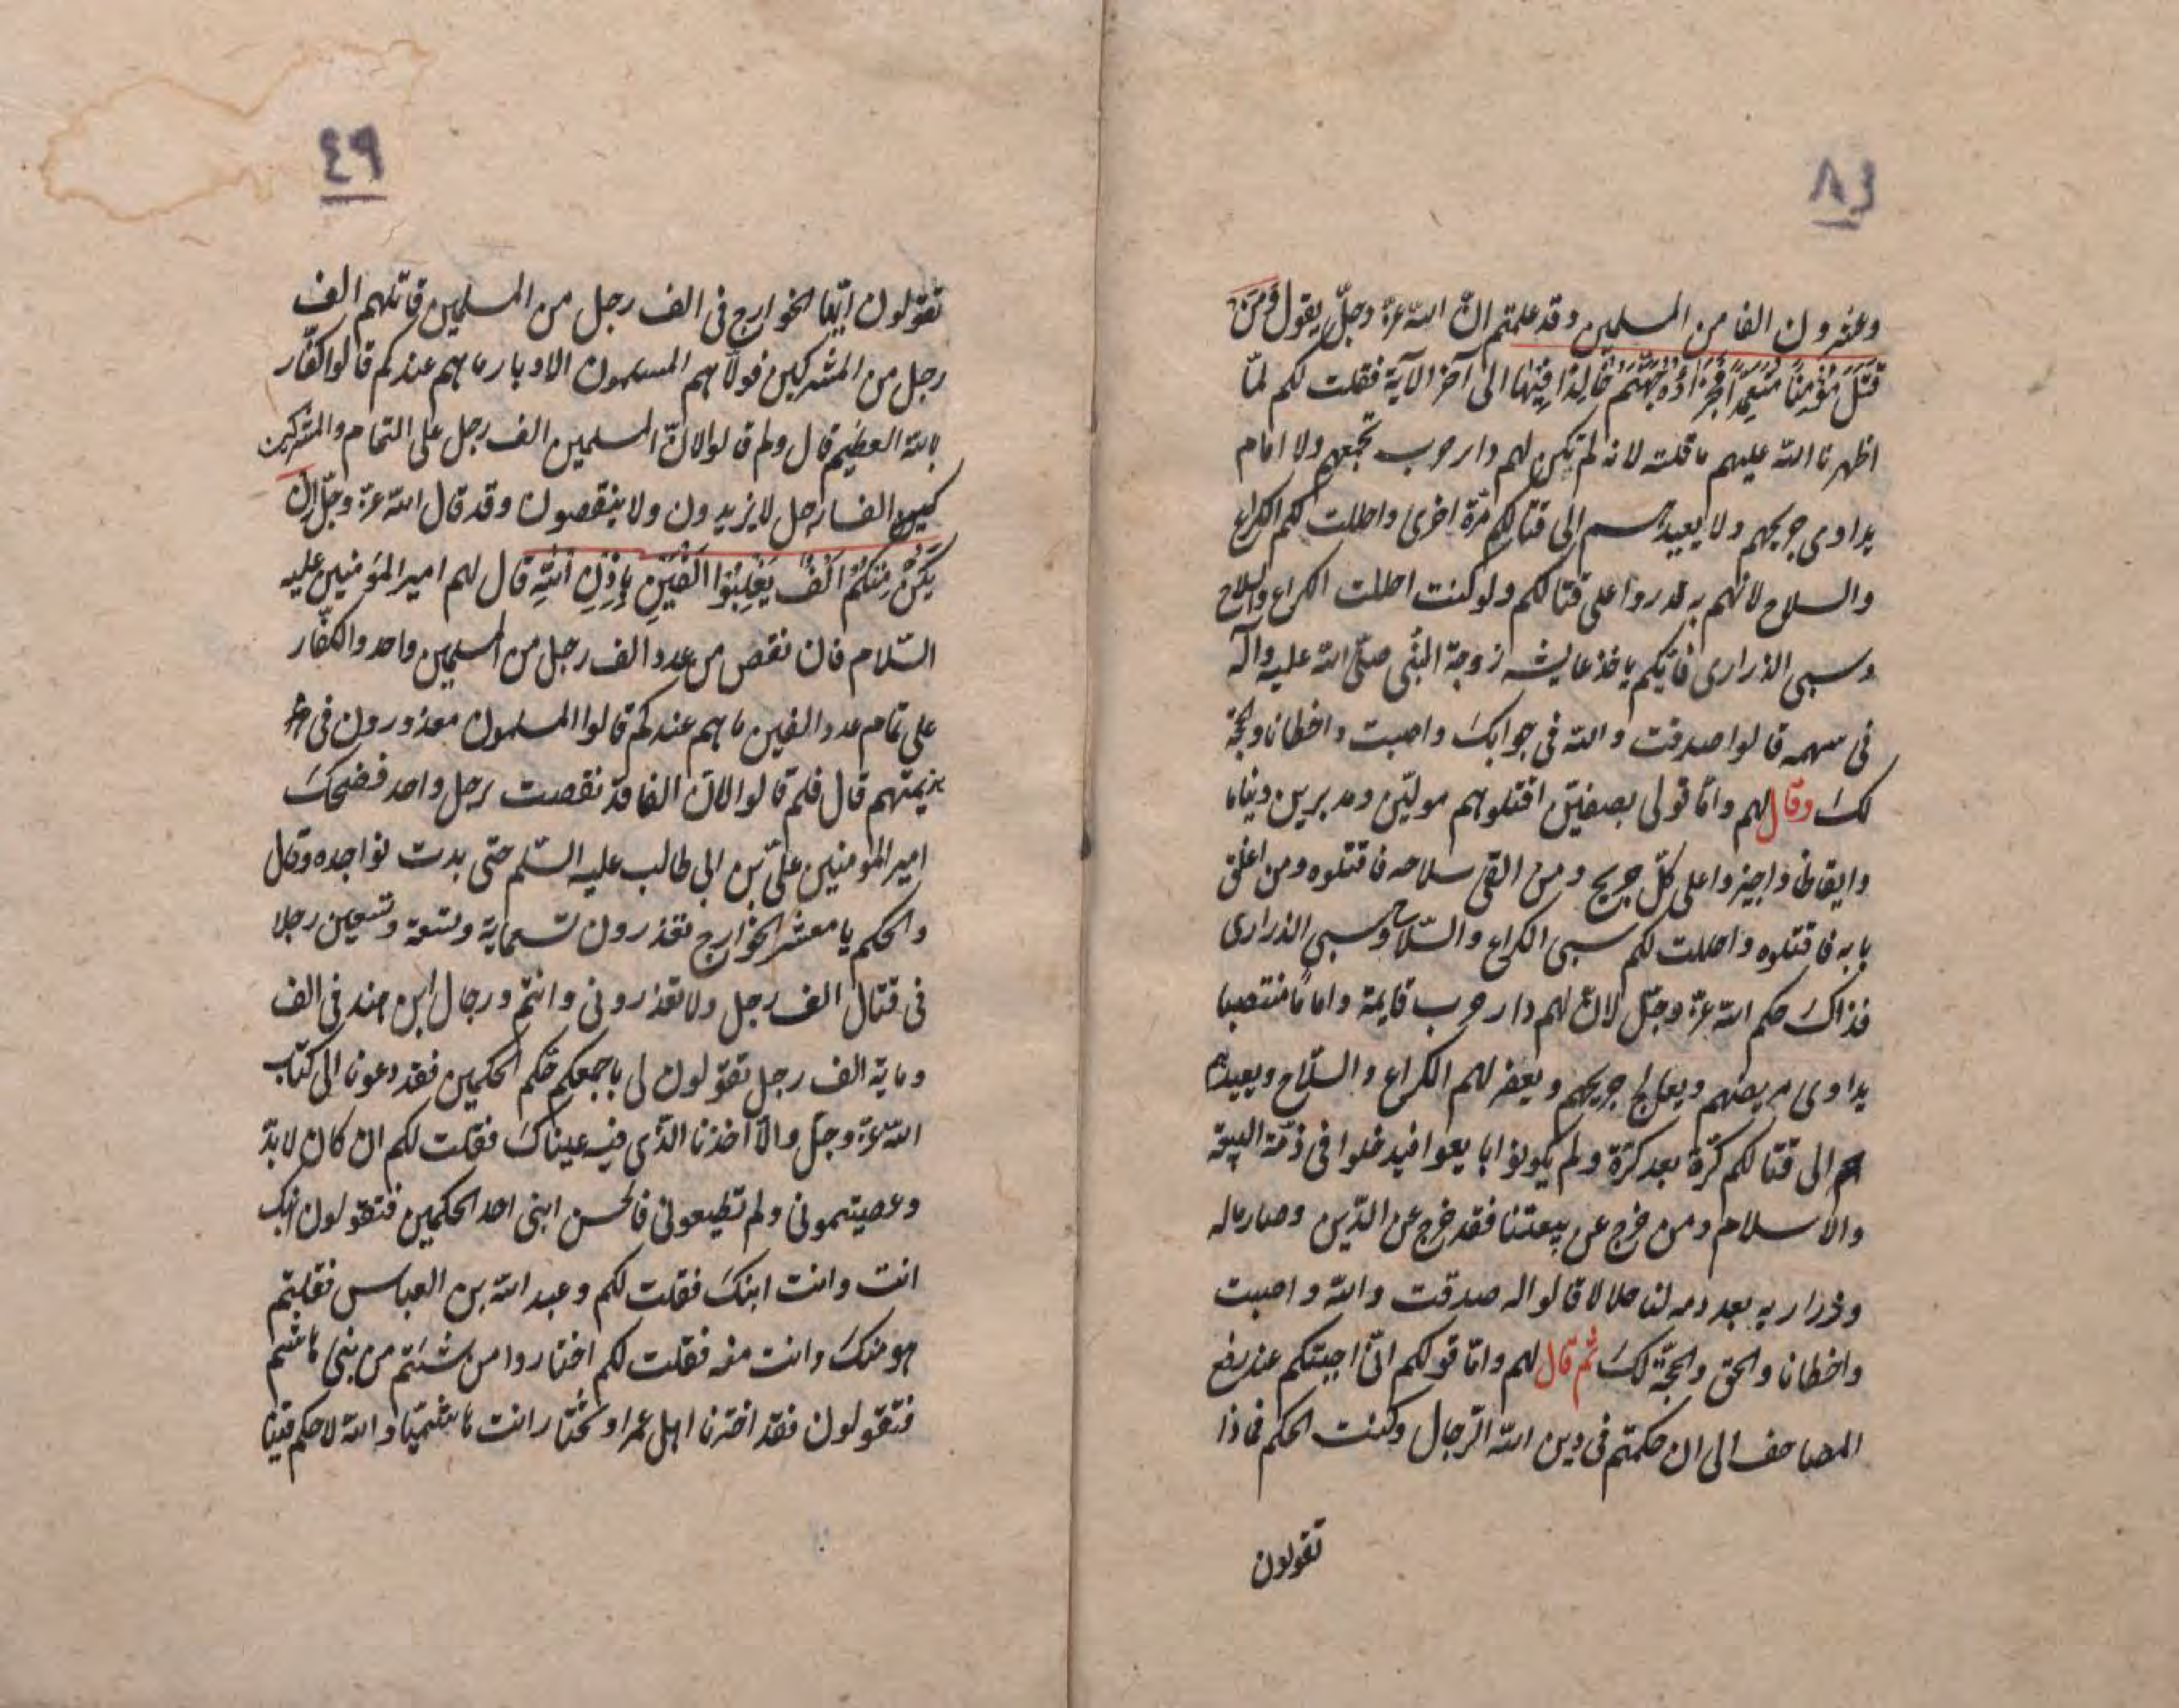 ٤٨
وعشرون الفا من المسلمين وقد علمتم انّ الله عزّ وجلّ يقول ومَن
قَتَلَ مُؤمِنًا مُتَعَمِّدًا فجَزاؤُهُ جَهَنَّمُ خَالِدًا فِيْهَا الى آخر الآية فقلت لكم لمّا
اظهرنا الله عليهم ما قلته لانه لم تكن لهم دار حرب تجمعهم ولا امام
يداوى جريحهم ولا يعيدهم الى قتالكم مرّة اخرى واحللت لكم الكراع
والسلاح لانّهم به قدروا على قتالكم ولو كنت احللت الكراع والسلاح
وسبى الذرارى فايّكم ياخذ عايشه زوجة النبى صلّى الله عليه وآله
فى سهمه قالوا صدقت والله فى جوابك واصبت واخطانا والحجّة
لك وقال لهم وامّا قولى بصفين اقتلوهم مولّين ومدبرين ونياما
وايقاظا واجيزوا على كلّ جريح ومن القى سلاحه فاقتلوه ومن اغلق
بابه فاقتلوه واحللت لكم سبى الكراع والسّلاح وسبى الذرارى
فذاك حكم الله عزّ وجلّ لانّ لهم دار حرب قايمة واماما منتصبا
يداوى مريضهم ويعالج جريحهم ويعفر لهم الكراع والسّلاح ويعيدهم
الى قتالكم كرّة بعد كرّة ولم يكونوا بايعوا فيدخلوا فى ذمّة البيعة
والاسلام ومن خرج عن بيعتنا فقد خرج عن الدّين وصار ماله
وذراريه بعد دمه لنا حلالا قالوا له صدقت والله واصبت
واخطانا والحق والحجّة لك ثم قال لهم وامّا قولكم انّى اجبتكم عند رفع
المصاحف الى ان حكمتم فى دين الله الرّجال وكنت الحكم فماذا
تقولون
٤٩
تقولون ايّها الخوارج فى الف رجل من المسلمين قاتلهم الف
رجل من المشركين فولاهم المسلمون الادبار ما هم عندكم قالوا كفّار
بالله العظيم قال ولم قالوا لانّ المسلمين الف رجل على التمام والمشركين
كمين الفا رجل لا يزيدون ولا ينقصون وقد قال الله عزّ وجلّ ان
يَكُنْ مِنْكُمْ اَلْفٌ يَغْلِبُوا الْفَيْنِ بِاِذْنِ اللهِ قال لهم امير المؤمنين عليه
السّلام فان نقص من عدد الف رجل من المسلمين واحد والكفّار
على تمام عدد الفين ما هم عندكم قالوا المسلمون معذورون فى
هزيمتهم قال فلم قالوا لانّ الفا قد نقصت رجل واحد فضحك
امير المؤمنين علىّ بن ابى طالب عليه السّلم حتى بدت نواجده وقال
والحكم يا معشر الخوارج تعذرون تسعماية وتسعة وتسعين رجلا
فى قتال الف رجل ولا تعذرونى وانتم ورجال ابن هند فى الف
وماية الف رجل تقولون لى باجمعكم حكم الحكمين فقد دعونا الى كتاب
الله عزّ وجلّ والّا اخذنا الذّى فيه عيناك فقلت لكم ان كان لا بدّ
وعصيتمونى ولم تطيعونى فالحسن ابنى احد الحكمين فتقولون ابنك
انت وانت ابنك فقلت لكم وعبد الله بن العباس فقلتم
هو منك وانت منه فقلت لكم اختاروا من شئتم من بنى هاشم
فتقولون فقد اخترنا اهل عمرا وتختار انت هاشميّا والله لا حكم فينا